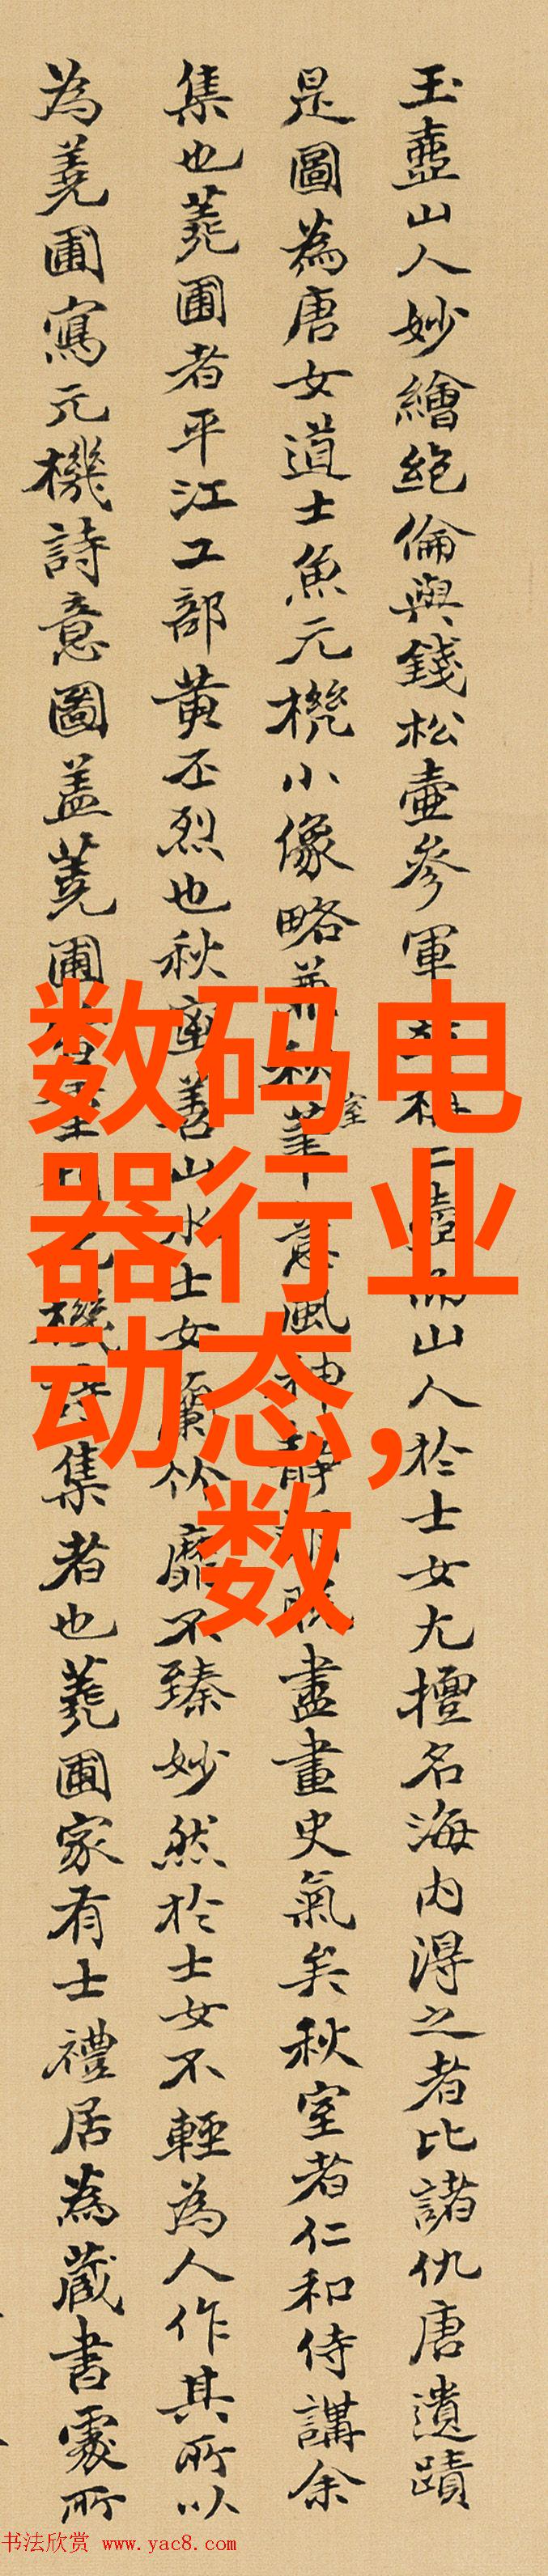 玉壺山人妙繪絶倫與錢松壺參軍二壺山人於士女尤擅名海内淂之者比諸仇唐遺蹟
是圖為唐女道士魚元機小像略兼秋室筆意風神靜脫盡畫史氣矣秋室者仁和侍講余
集也蕘圃者平江工部黄丕烈也秋室善山水士女蘭竹靡不臻妙然於士女不輕為人作其所以
為蕘圃寫元機詩意圖盖蕘圃機詩集者也蕘圃家有士禮居為藏書處所
数码电
器行业
动态,
数
书法欣赏 www.yac8.com